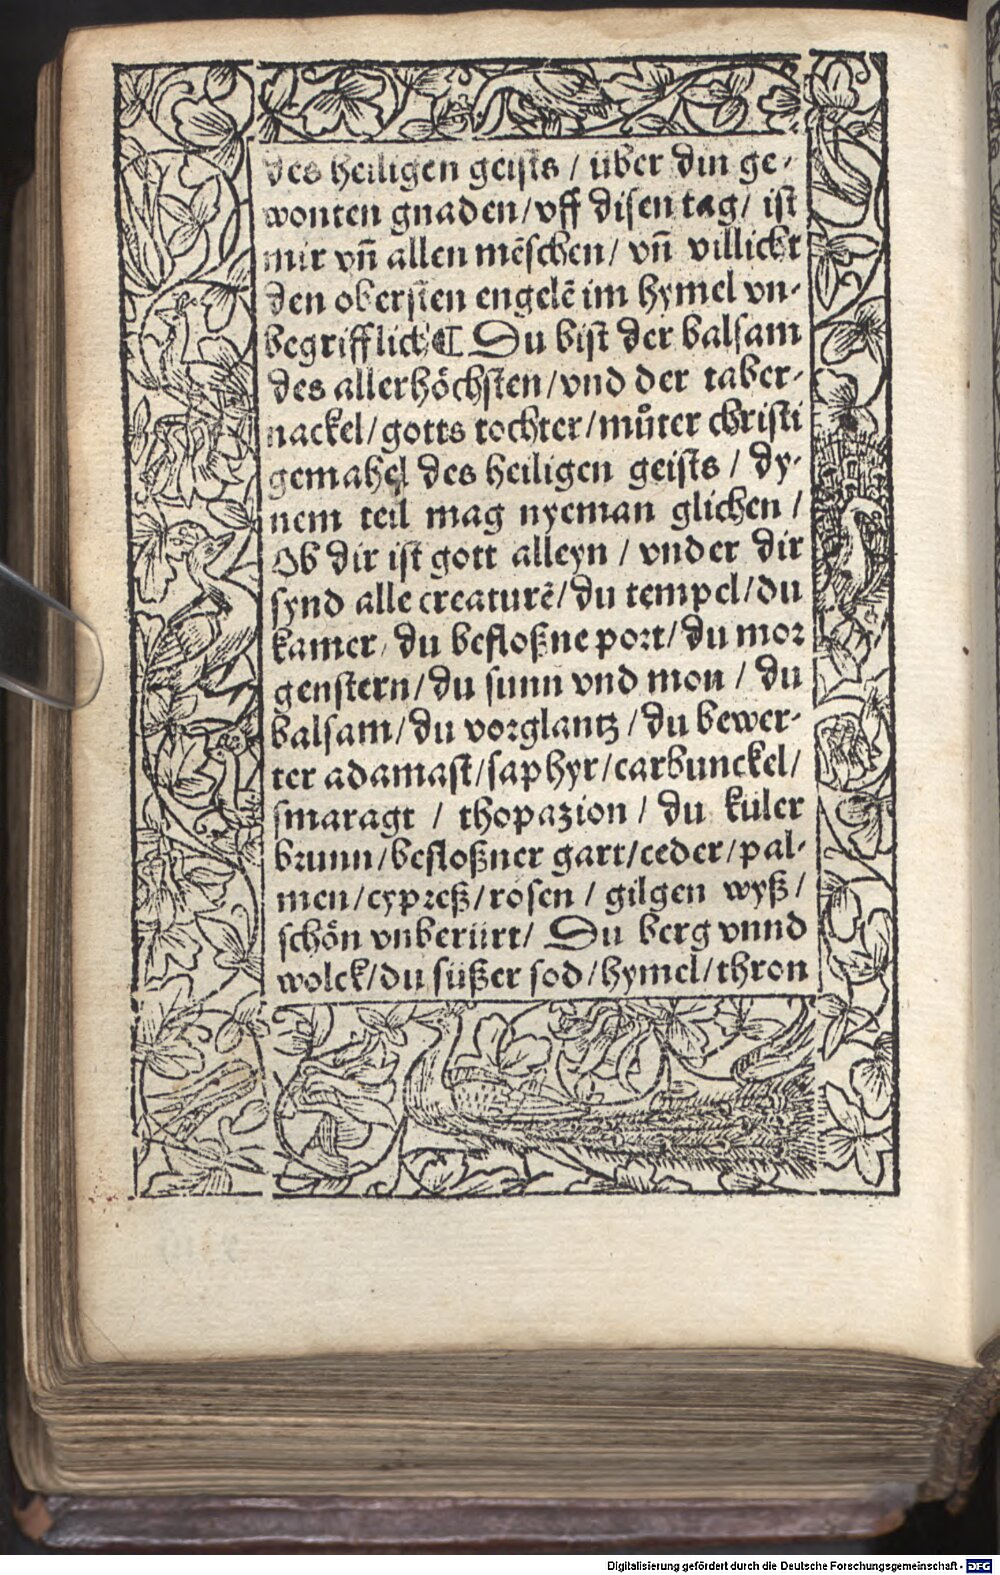 des heiligen geists / über din ge-
wonten gnaden/vff disen tag/ ist
mir vn̄ allen mēschen/ vn̄ villicht
den obersten engelē im hymel vn-
begrifflich ¶ Du bist der balsam
des allerhöchsten/vnd der taber-
nackel/gotts tochter/můter christi
gemahel des heiligen geists / dy-
nem teil mag nyeman glichen /
Ob dir ist gott alleyn / vnder dir
synd alle creaturē/du tempel/du
kamer, du besloßne port/du mor
genstern/du sunn vnd mon / du
balsam/du vorglantz/du bewer-
ter adamast/saphyr/carbunckel/
smaragt / thopazion / du küler
brunn/besloßner gart/ceder/pal-
men/cypreß/rosen / gilgen wyß/
schön vnberürt/ Du berg vnnd
wolck/du süßer sod/hymel/thron
Digitalisierung gefördert durch die Deutsche Forschungsgemeinschaft - DFG